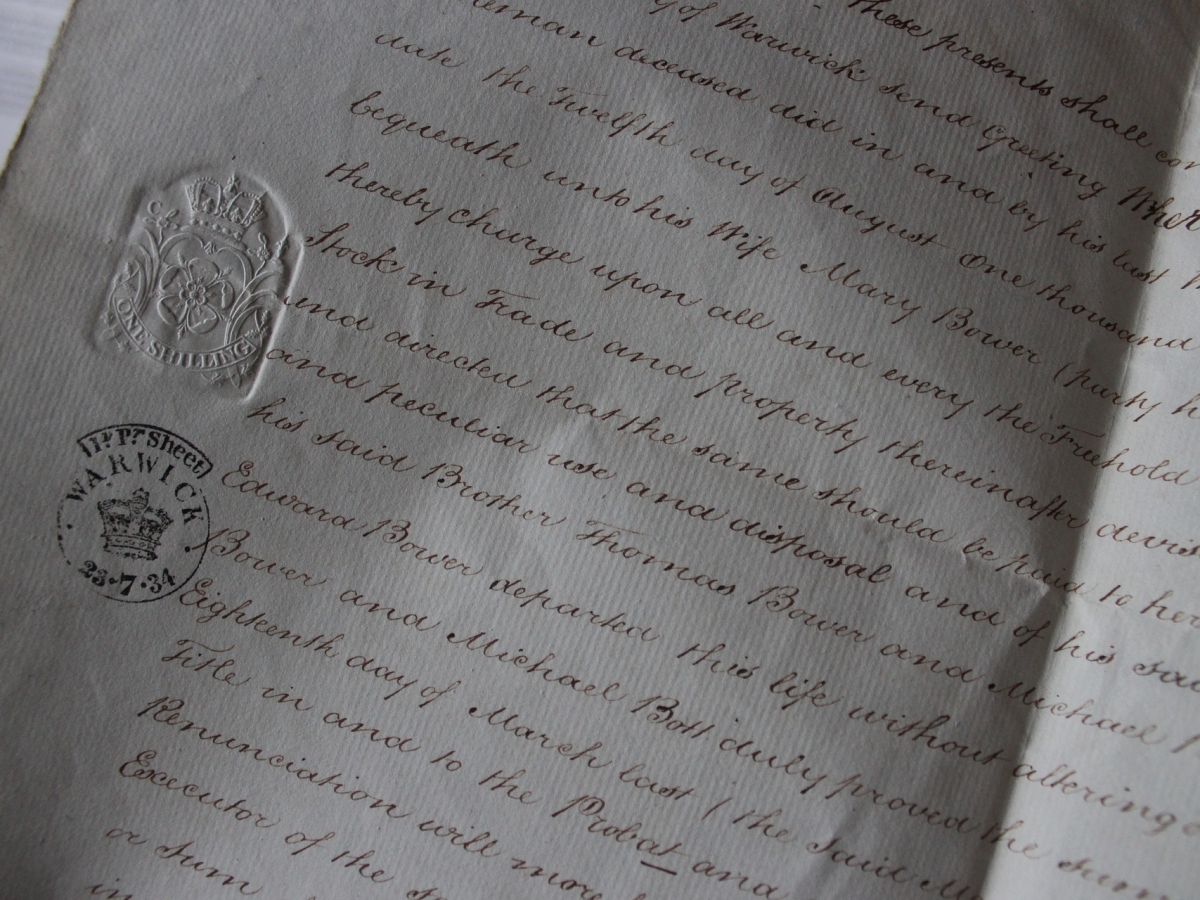 These presents shall
of Warwick send Greeting
deceased did in and by his last
date the Twelfth day of August One thousand
bequeath unto his Wife Mary Bower (party
thereby charge upon all and every the Freehold
Stock in Trade and property thereinafter
and directed that the same should be paid to her
and peculiar use and disposal and of his
his said Brother Thomas Bower and Michael
Edward Bower departed this life without altering
Bower and Michael Bott duly proved the same
Eighteenth day of March last (the said
Title in and to the Probat and
Renunciation will more
Executor of the
or sum
in
ONE SHILLING
Sheet
WARWICK
23·7·34